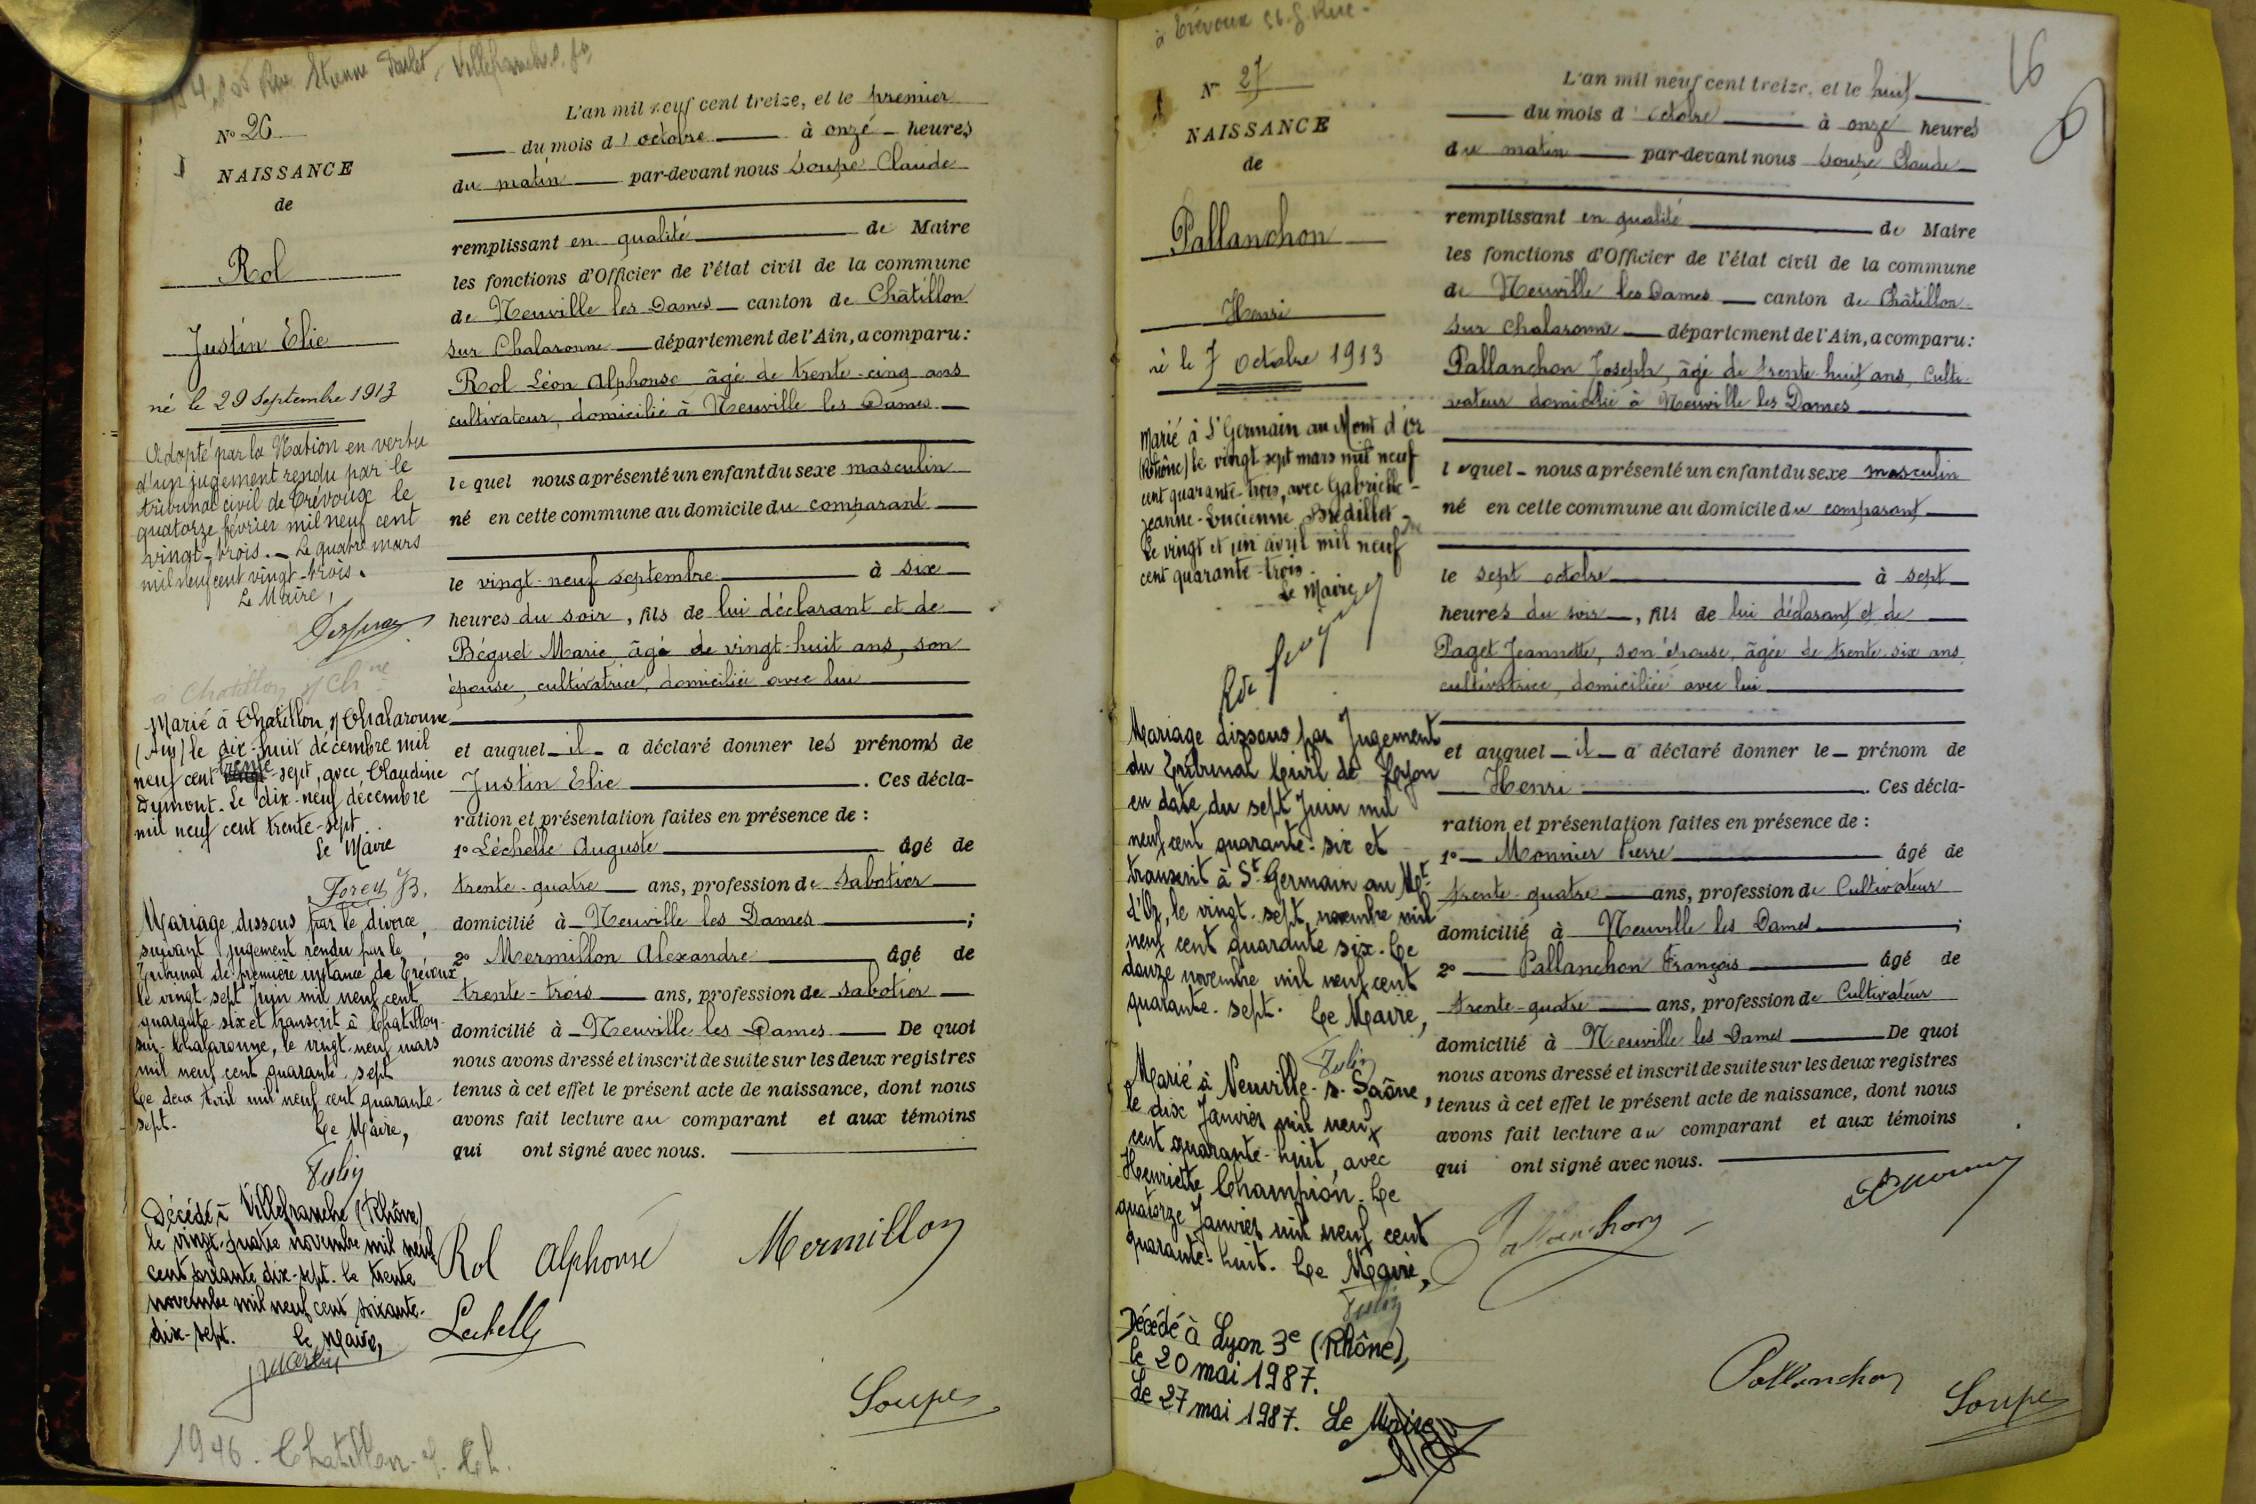 Rue Etienne Dolet, Villefranche s. Sne
N° 26
NAISSANCE
de
Rol
Justin Elie
né le 29 Septembre 1913
Adopté par la Nation en vertu
d'un jugement rendu par le
tribunal civil de Trévoux le
quatorze février mil neuf cent
vingt-trois. – Le quatre mars
mil neuf cent vingt-trois.
Le Maire,
à Chatillon s/ Chne
Marié à Chatillon s/ Chalaronne
(Ain) le dix-huit décembre mil
neuf cent trente-sept, avec Claudine
Dymont. Le dix-neuf décembre
mil neuf cent trente-sept.
Le Maire
Mariage dissous par le divorce,
suivant jugement rendu par le
Tribunal de première instance de Trévoux
le vingt-sept Juin mil neuf cent
quarante-six et transcrit à Chatillon-
sur-Chalaronne, le vingt-neuf mars
mil neuf cent quarante-sept
Le deux Avril mil neuf cent quarante-
sept. Le Maire,
Décédé à Villefranche (Rhône)
le vingt-quatre novembre mil neuf
cent soixante dix-sept. Le trente
novembre mil neuf cent soixante-
dix-sept. Le Maire,
1946 - Chatillon-s. Ch.
L'an mil neuf cent treize, et le premier
du mois d'octobre à onze heures
du matin par-devant nous Soupe Claude
remplissant en qualité de Maire
les fonctions d'Officier de l'état civil de la commune
de Neuville les Dames canton de Châtillon
sur Chalaronne département de l'Ain, a comparu :
Rol Léon Alphonse âgé de trente-cinq ans
cultivateur, domicilié à Neuville les Dames
lequel nous a présenté un enfant du sexe masculin
né en cette commune au domicile du comparant
le vingt-neuf septembre à six
heures du soir, fils de lui déclarant et de
Béguet Marie, âgé de vingt-huit ans, son
épouse, cultivatrice, domiciliée avec lui
et auquel il a déclaré donner les prénoms de
Justin Elie. Ces décla-
ration et présentation faites en présence de :
1° Léchelle Auguste âgé de
trente-quatre ans, profession de sabotier
domicilié à Neuville les Dames ;
2° Mermillon Alexandre âgé de
trente-trois ans, profession de sabotier
domicilié à Neuville les Dames De quoi
nous avons dressé et inscrit de suite sur les deux registres
tenus à cet effet le présent acte de naissance, dont nous
avons fait lecture au comparant et aux témoins
qui ont signé avec nous.
Rol Alphonse Mermillon
Lechelle
Soupe
à Trévoux 56 g. Rue -
16
N° 27
NAISSANCE
de
Pallanchon
Henri
né le 7 octobre 1913
Marié à St Germain au Mont d'Or
(Rhône) le vingt sept mars mil neuf
cent quarante-trois, avec Gabrielle-
Jeanne-Lucienne Bredillet -
Le vingt et un avril mil neuf
cent quarante-trois.
Le Maire
Mariage dissous par Jugement
du Tribunal Civil de Lyon
en date du sept Juin mil
neuf cent quarante-six et
transcrit à St Germain au Mt
d'Or, le vingt-sept novembre mil
neuf cent quarante six. Le
douze novembre mil neuf cent
quarante-sept. Le Maire,
Marié à Neuville-s-Saône,
le dix Janvier mil neuf
cent quarante-huit, avec
Henriette Champion. Le
quatorze Janvier mil neuf cent
quarante-huit. Le Maire,
Décédé à Lyon 3e (Rhône),
le 20 mai 1987.
Le 27 mai 1987. Le Maire
L'an mil neuf cent treize, et le huit
du mois d'octobre à onze heures
du matin par-devant nous Soupe Claude
remplissant en qualité de Maire
les fonctions d'Officier de l'état civil de la commune
de Neuville les Dames canton de Châtillon
sur Chalaronne département de l'Ain, a comparu :
Pallanchon Joseph, âgé de trente-huit ans, culti-
vateur domicilié à Neuville les Dames
lequel nous a présenté un enfant du sexe masculin
né en cette commune au domicile du comparant
le sept octobre à sept
heures du soir, fils de lui déclarant et de
Paget Jeannette, son épouse, âgée de trente-six ans,
cultivatrice, domiciliée avec lui
et auquel il a déclaré donner le prénom de
Henri. Ces décla-
ration et présentation faites en présence de :
1° Monnier Pierre âgé de
trente-quatre ans, profession de Cultivateur
domicilié à Neuville les Dames ;
2° Pallanchon François âgé de
trente-quatre ans, profession de Cultivateur
domicilié à Neuville les Dames De quoi
nous avons dressé et inscrit de suite sur les deux registres
tenus à cet effet le présent acte de naissance, dont nous
avons fait lecture au comparant et aux témoins
qui ont signé avec nous.
Pallanchon
Pallanchon Soupe